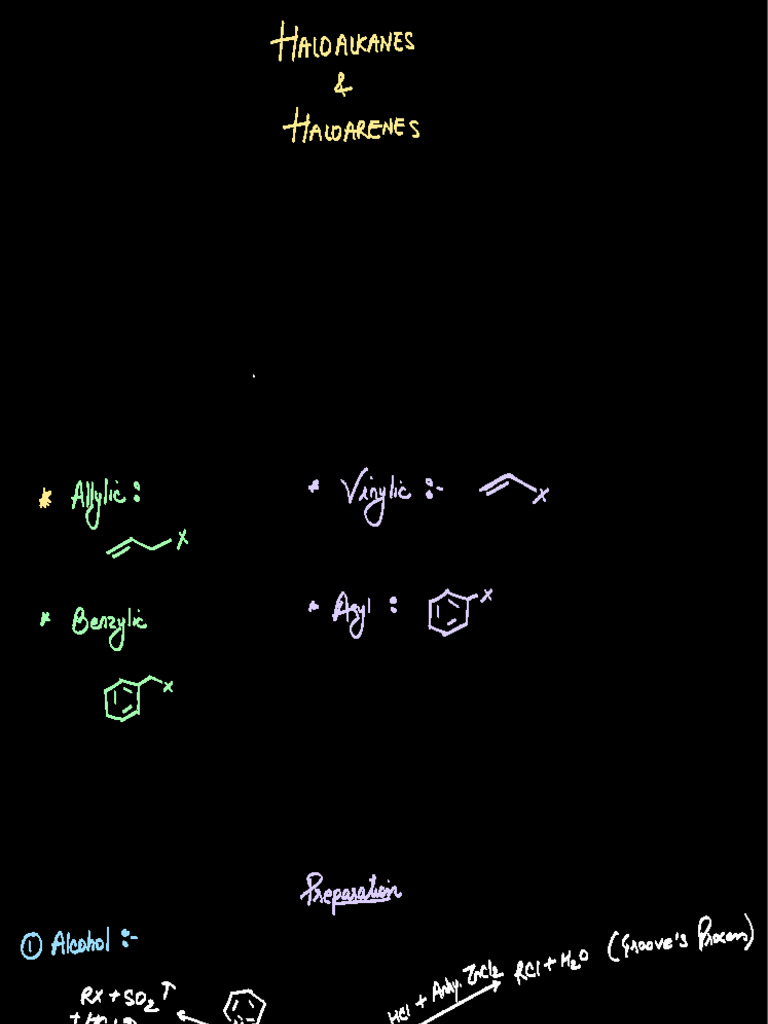 HALOALKANES
&
HALOARENES
* Allylic :
X
* Vinylic :-
X
* Benzylic
X
* Aryl :
X
Preparation
① Alcohol :-
RX + SO₂ ↑
HCl + Anhy. ZnCl₂
RCl + H₂O (Groove's Process)